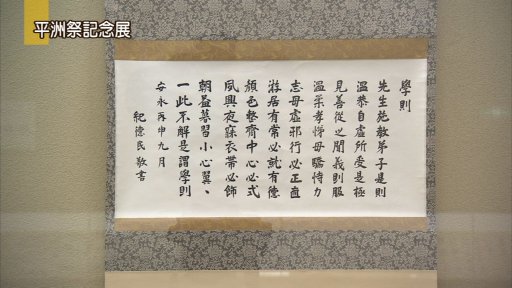 平洲祭記念展
學則
先生施教弟子是則
温恭自虚所受是極
見善從之聞義則服
温柔孝悌毋驕恃力
志毋虚邪行必正直
游居有常必就有德
顔色整齊中心必式
夙興夜寐衣帶必飾
朝益暮習小心翼〻
一此不解是謂學則
安永丙申九月
紀德民敬書